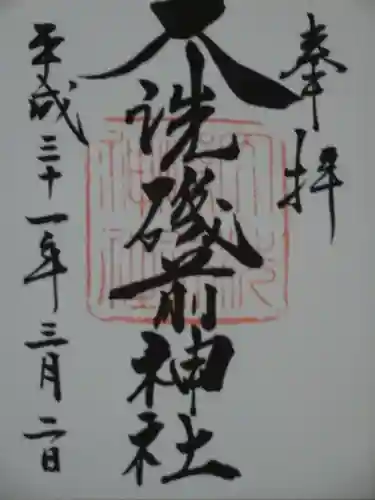 奉拝
大洗磯前神社
平成三十一年三月二日